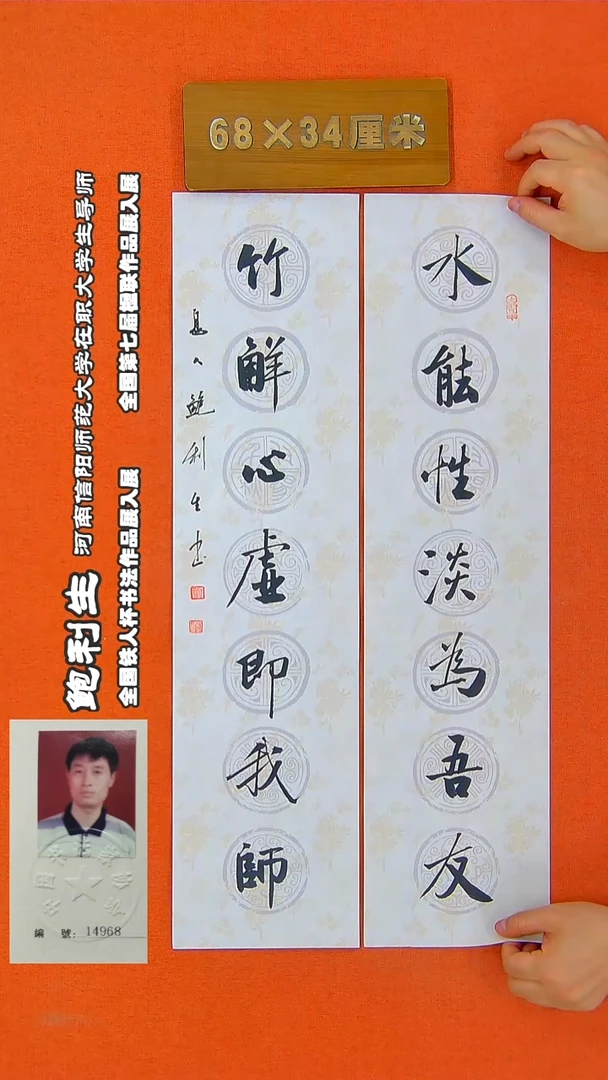 68×34厘米
水能性淡為吾友
竹觧心虛即我師
息人鲍利生书
鲍利生 河南信阳师范大学在职大学生导师
全国铁人杯书法作品展入展 全国第七届楹联作品展入展
編 號: 14968